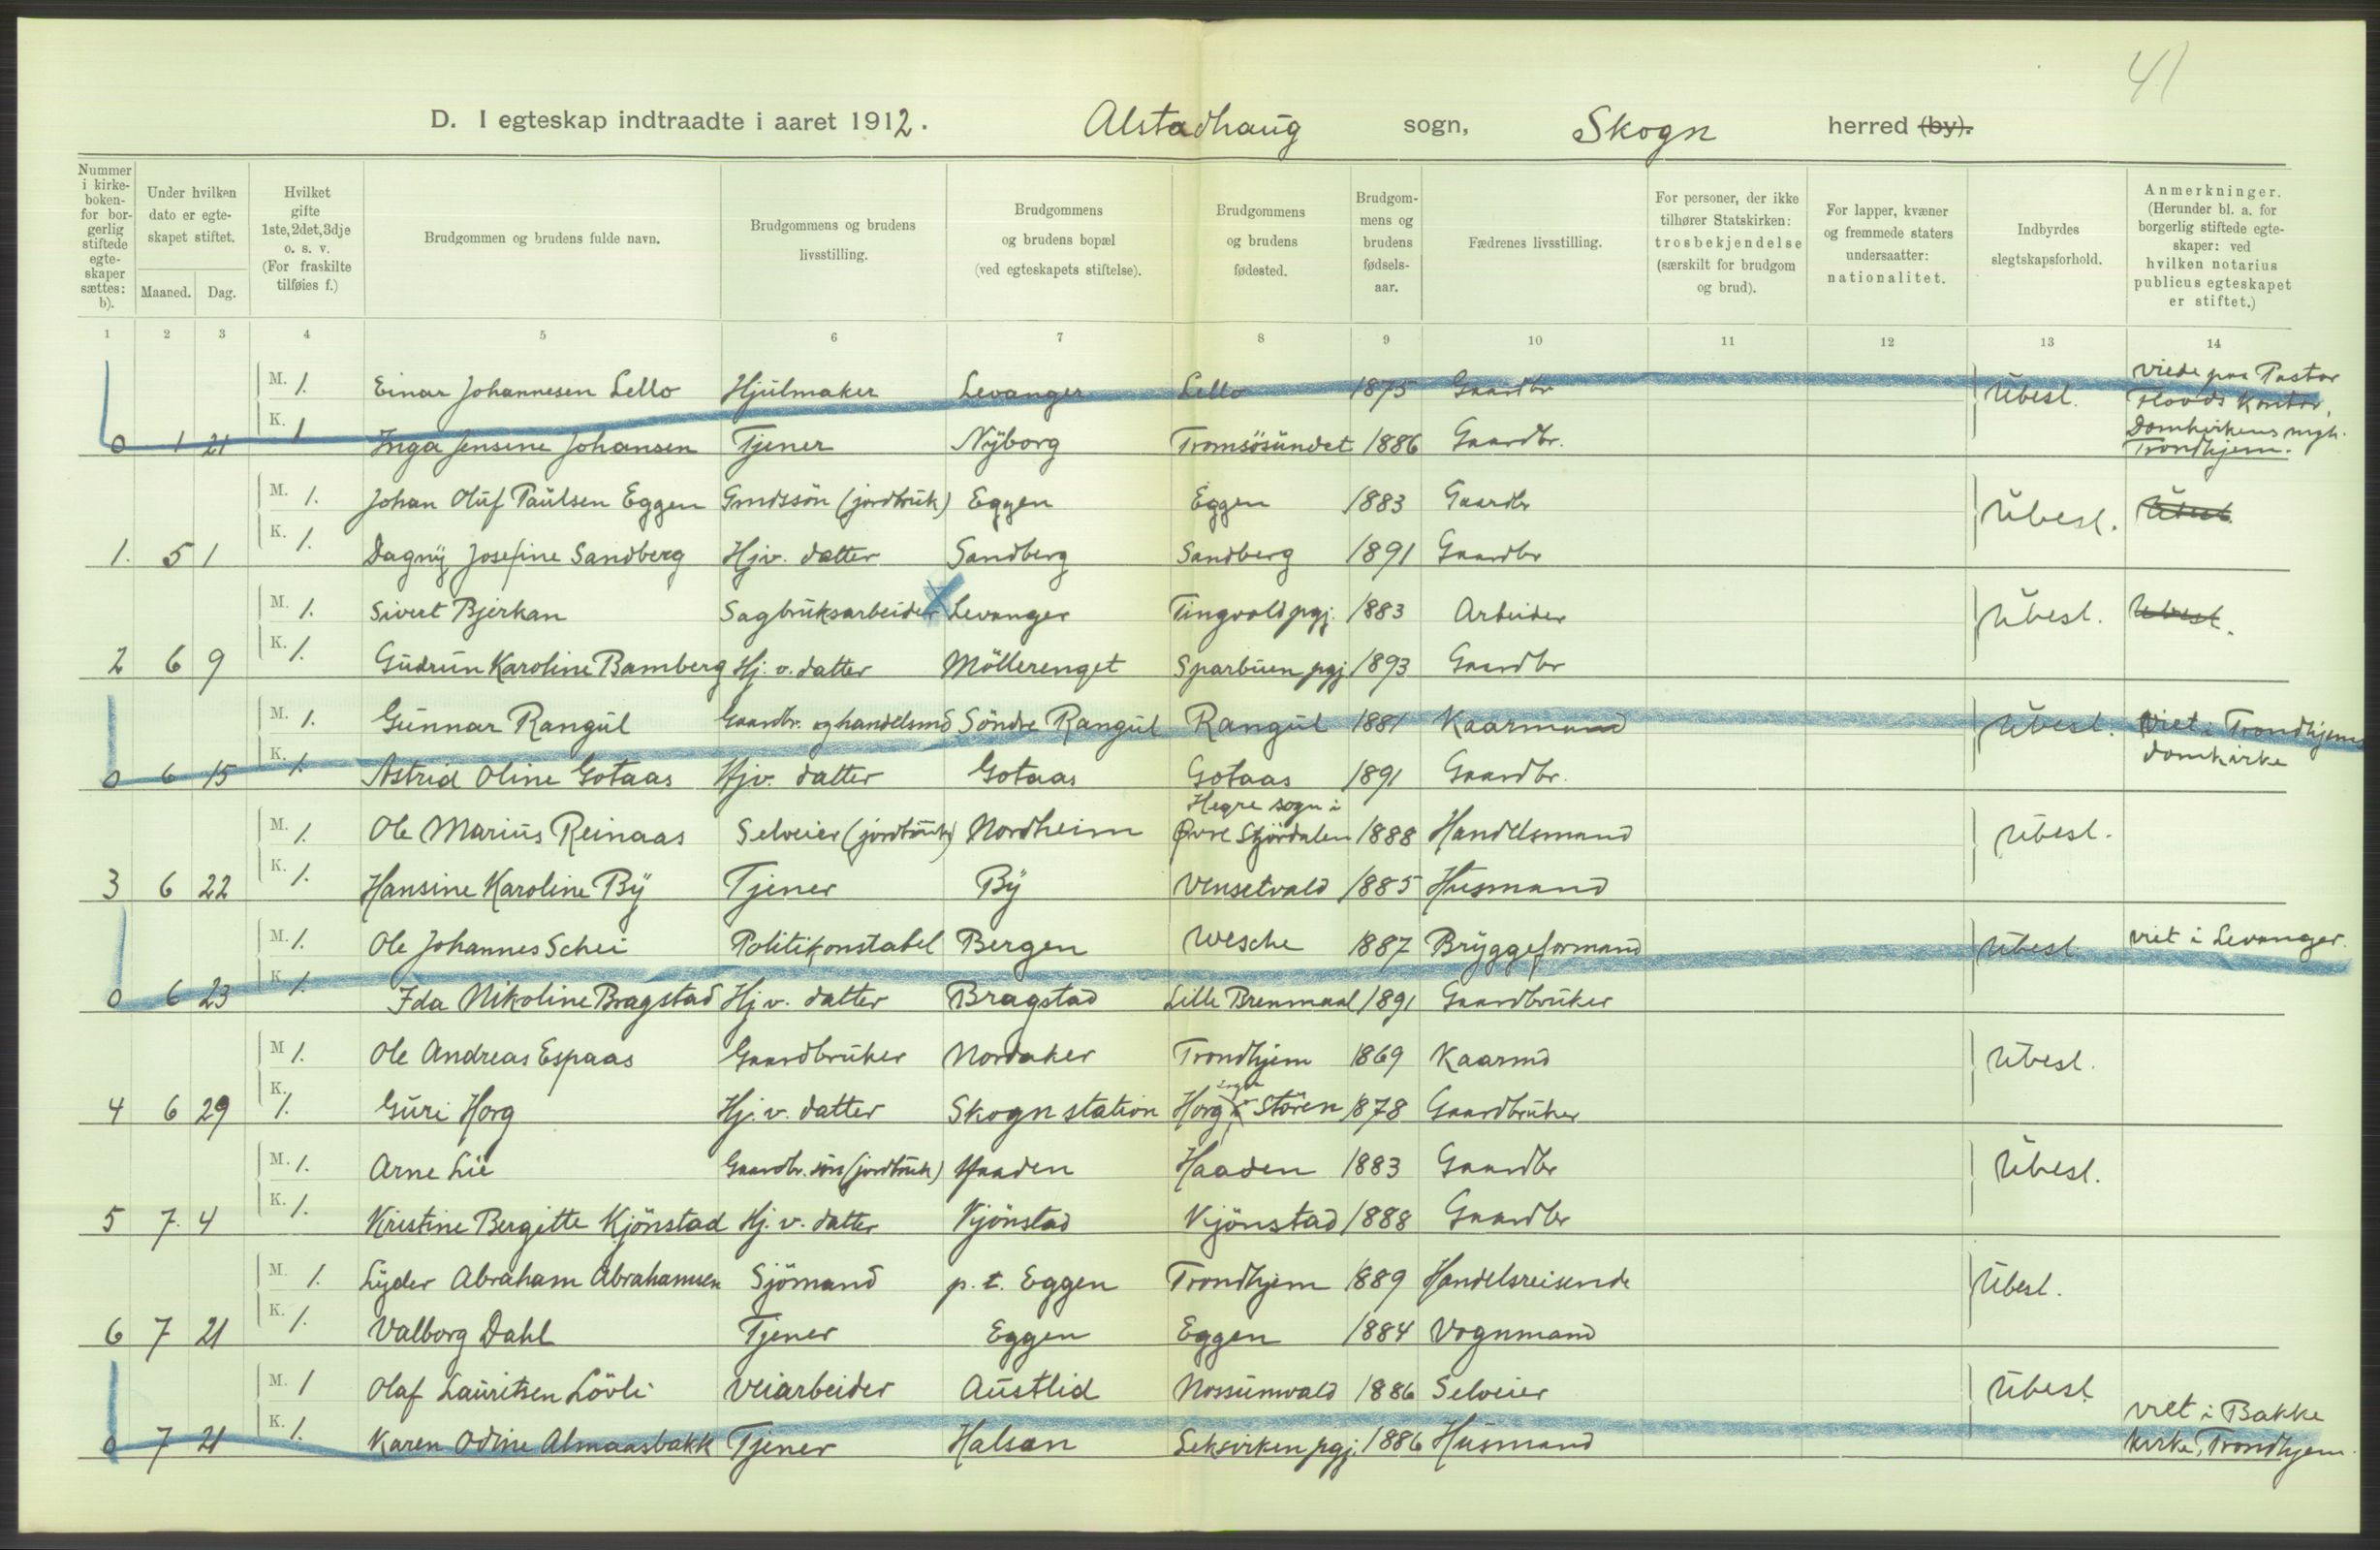 41
D. I egteskap indtraadte i aaret 1912. Alstadhaug sogn, Skogn herred (by).
Nummer i kirke-boken- for bor-gerlig stiftede egte-skaper sættes: b).
Under hvilken dato er egte-skapet stiftet.
Maaned. Dag.
Hvilket gifte 1ste, 2det, 3dje o. s. v. (For fraskilte tilføies f.)
Brudgommen og brudens fulde navn.
Brudgommens og brudens livsstilling.
Brudgommens og brudens bopæl (ved egteskapets stiftelse).
Brudgommens og brudens fødested.
Brudgom-mens og brudens fødsels-aar.
Fædrenes livsstilling.
For personer, der ikke tilhører Statskirken: trosbekjendelse (særskilt for brudgom og brud).
For lapper, kvæner og fremmede staters undersaatter: nationalitet.
Indbyrdes slegtskapsforhold.
Anmerkninger. (Herunder bl. a. for borgerlig stiftede egte-skaper: ved hvilken notarius publicus egteskapet er stiftet.)
1 2 3 4 5 6 7 8 9 10 11 12 13 14
M. 1. Einar Johannesen Lello Hjulmaker Levanger Lello 1875 Gaardbr Ubesl. viede paa Pastor Floods kontor,
0 1 21 K. 1 Inga Jensine Johansen Tjener Nyborg Tromsösundet 1886 Gaardbr. Domkirkens mgh. Trondhjem.
M. 1. Johan Oluf Paulsen Eggen Grndssön (jordbruk) Eggen Eggen 1883 Gaardbr Ubesl. Ubesl.
1. 5 1 K. 1. Dagny Josefine Sandberg Hjv. datter Sandberg Sandberg 1891 Gaardbr
M. 1. Sivert Bjerkan Sagbruksarbeider Levanger Tingvold pgj. 1883 Arbeider Ubesl. Ubesl.
2 6 9 K. 1. Gudrun Karoline Bamberg Hj. v. datter Möllerenget Sparbuen pgj 1893 Gaardbr
M. 1. Gunnar Rangul Gaardbr. og handelsmd Söndre Rangul Rangul 1881 Kaarmand Ubesl. Viet i Trondhjems
0 6 15 K. 1. Astrid Oline Gotaas Hjv. datter Gotaas Gotaas 1891 Gaardbr. domkirke
M. 1. Ole Marius Reinaas Selveier (jordbruk) Nordheim Hegre sogn i Øvre Stjördalen 1888 Handelsmand Ubesl.
3 6 22 K. 1. Hansine Karoline By Tjener By Vensetvald 1885 Husmand
M. 1. Ole Johannes Schei Politikonstabel Bergen Wesche 1887 Bryggeformand Ubesl viet i Levanger.
0 6 23 K 1. Ida Nikoline Bragstad Hjv. datter Bragstad Lille Brenmaal 1891 Gaardbruker
M 1. Ole Andreas Espaas Gaardbruker Nordaker Trondhjem 1869 Kaarmd Ubesl.
4 6 29 K. 1. Guri Horg Hj. v. datter Skogn station Horg sogn i Stören 1878 Gaardbruker
M. 1. Arne Lie Gaardbr. sön (jordbruk) Haaden Haaden 1883 Gaardbr Ubesl.
5 7. 4 K. 1. Kristine Bergitte Kjönstad Hj. v. datter Kjönstad Kjönstad 1888 Gaardbr
M. 1. Lyder Abraham Abrahamsen Sjömand p. t. Eggen Trondhjem 1889 Handelsreisende Ubesl.
6 7 21 K. 1. Valborg Dahl Tjener Eggen Eggen 1884 Vognmand
M. 1 Olaf Lauritsen Lövli Veiarbeider Austlid Nossumvald 1886 Selveier Ubesl. viet i Bakke
0 7 21 K. 1. Karen Odine Almaasbakk Tjener Halsan Leksviken pgj. 1886 Husmand kirke, Trondhjem.